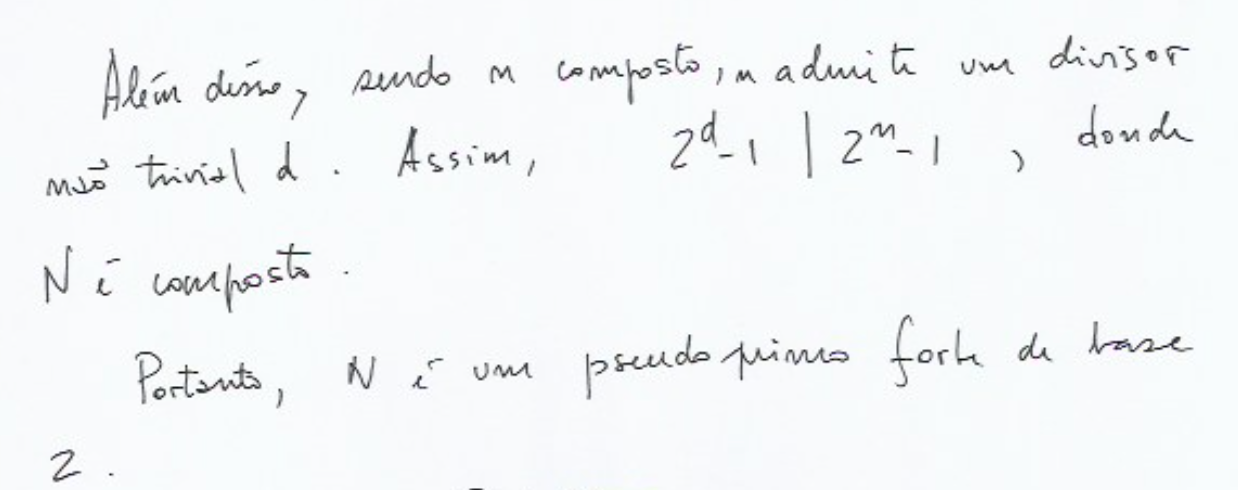 Além disso, sendo n composto, n admite um divisor
não trivial d. Assim, 2^d-1 | 2^n-1, donde
N é composto.
Portanto, N é um pseudoprimo forte de base
2.